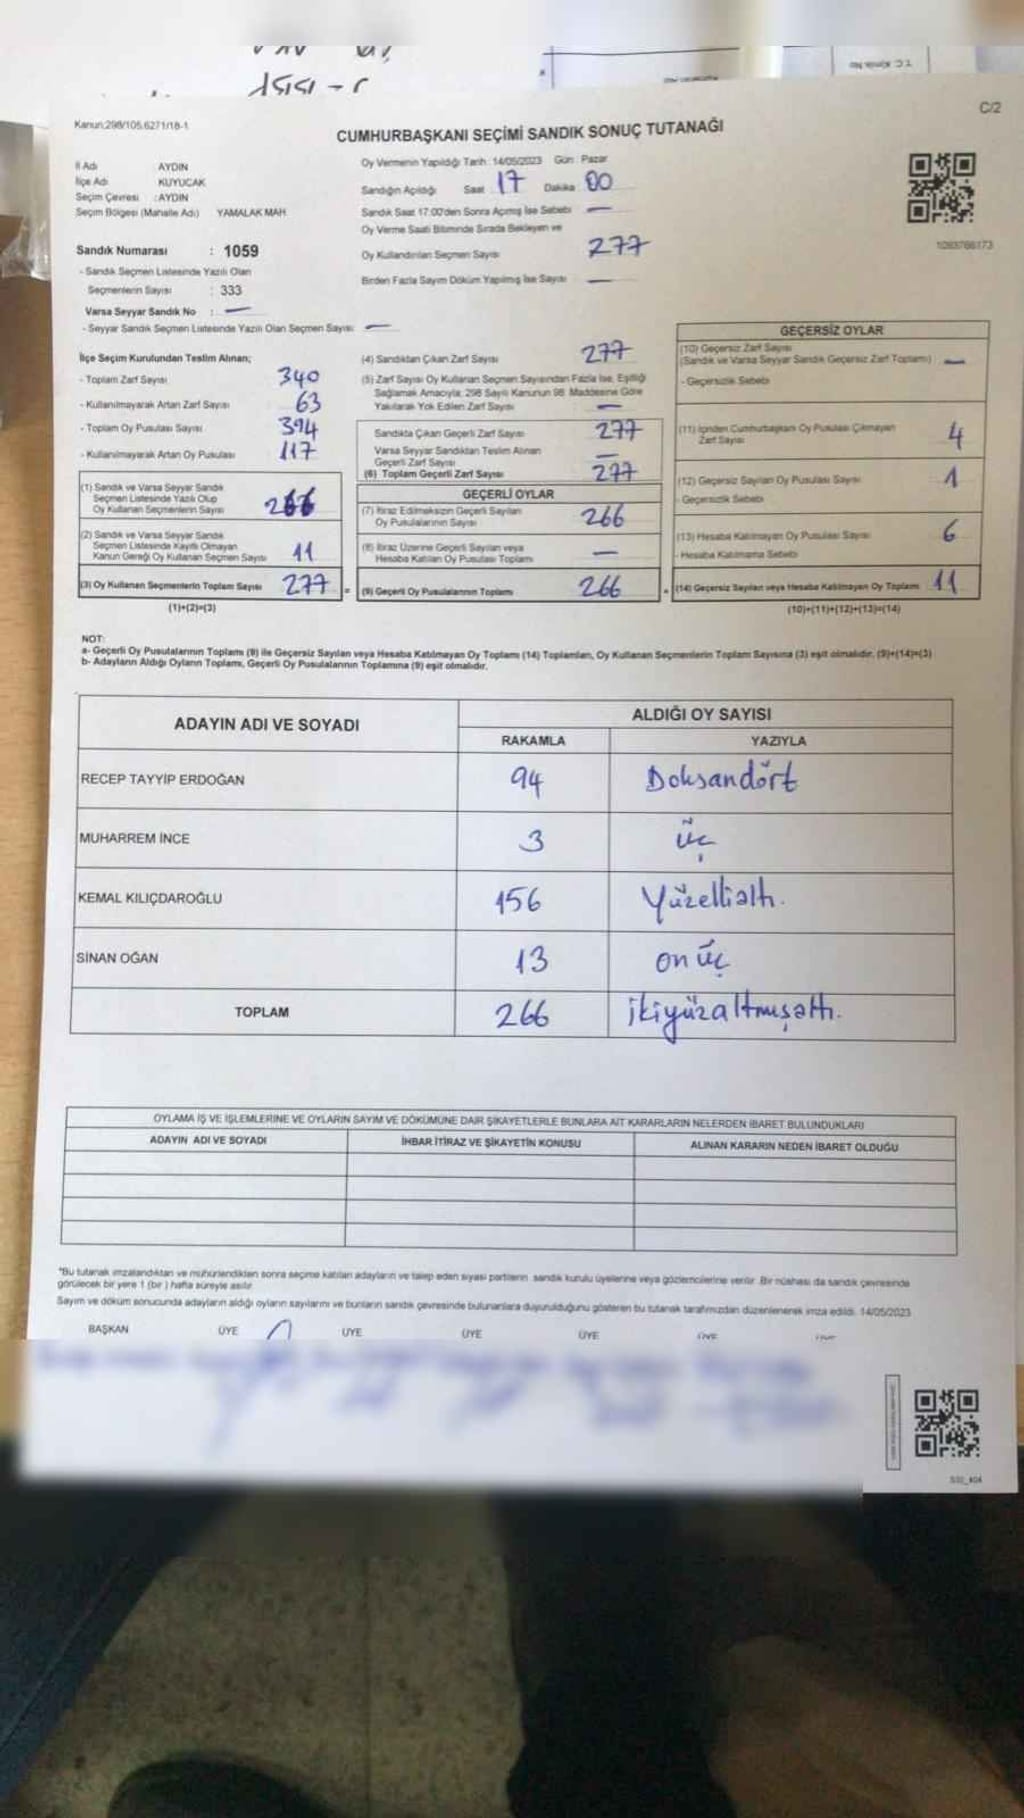 J-ISIST
T.C. Kimlik No
Kanun:298/105,6271/18-1
C/2
CUMHURBAŞKANI SEÇİMİ SANDIK SONUÇ TUTANAĞI
İl Adı AYDIN
İlçe Adı KUYUCAK
Seçim Çevresi :AYDIN
Seçim Bölgesi (Mahalle Adı) YAMALAK MAH
Oy Vermenin Yapıldığı Tarih :14/05/2023 Gün : Pazar
Sandığın Açıldığı Saat 17 Dakika 00
Sandık Saat 17:00'den Sonra Açımış İse Sebebi —
Oy Verme Saati Bitiminde Sırada Bekleyen ve
Oy Kullandırılan Seçmen Sayısı 277
Birden Fazla Sayım Döküm Yapılmış İse Sayısı —
1093766173
Sandık Numarası : 1059
- Sandık Seçmen Listesinde Yazılı Olan
Seçmenlerin Sayısı : 333
Varsa Seyyar Sandık No : —
- Seyyar Sandık Seçmen Listesinde Yazılı Olan Seçmen Sayısı —
İlçe Seçim Kurulundan Teslim Alınan;
- Toplam Zarf Sayısı 340
- Kullanılmayarak Artan Zarf Sayısı 63
- Toplam Oy Pusulası Sayısı 394
- Kullanılmayarak Artan Oy Pusulası 117
(1) Sandık ve Varsa Seyyar Sandık
Seçmen Listesinde Yazılı Olup
Oy Kullanan Seçmenlerin Sayısı 266
(2) Sandık ve Varsa Seyyar Sandık
Seçmen Listesinde Kayıtlı Olmayan
Kanun Gereği Oy Kullanan Seçmen Sayısı 11
(3) Oy Kullanan Seçmenlerin Toplam Sayısı 277 =
(1)+(2)=(3)
(4) Sandıktan Çıkan Zarf Sayısı 277
(5) Zarf Sayısı Oy Kullanan Seçmen Sayısından Fazla İse, Eşitliği
Sağlamak Amacıyla, 298 Sayılı Kanunun 98. Maddesine Göre
Yakılarak Yok Edilen Zarf Sayısı —
Sandıkta Çıkan Geçerli Zarf Sayısı 277
Varsa Seyyar Sandıktan Teslim Alınan
Geçerli Zarf Sayısı —
(6) Toplam Geçerli Zarf Sayısı 277
GEÇERLİ OYLAR
(7) İtiraz Edilmeksizin Geçerli Sayılan
Oy Pusulalarının Sayısı 266
(8) İtiraz Üzerine Geçerli Sayılan veya
Hesaba Katılan Oy Pusulası Toplamı —
(9) Geçerli Oy Pusulalarının Toplamı 266 +
GEÇERSİZ OYLAR
(10) Geçersiz Zarf Sayısı
(Sandık ve Varsa Seyyar Sandık Geçersiz Zarf Toplamı) —
- Geçersizlik Sebebi
(11) İçinden Cumhurbaşkanı Oy Pusulası Çıkmayan
Zarf Sayısı 4
(12) Geçersiz Sayılan Oy Pusulası Sayısı 1
- Geçersizlik Sebebi
(13) Hesaba Katılmayan Oy Pusulası Sayısı 6
- Hesaba Katılmama Sebebi
(14) Geçersiz Sayılan veya Hesaba Katılmayan Oy Toplamı 11
(10)+(11)+(12)+(13)=(14)
NOT:
a- Geçerli Oy Pusulalarının Toplamı (9) ile Geçersiz Sayılan veya Hesaba Katılmayan Oy Toplamı (14) Toplamları, Oy Kullanan Seçmenlerin Toplam Sayısına (3) eşit olmalıdır. (9)+(14)=(3)
b- Adayların Aldığı Oyların Toplamı, Geçerli Oy Pusulalarının Toplamına (9) eşit olmalıdır.
ADAYIN ADI VE SOYADI
ALDIĞI OY SAYISI
RAKAMLA YAZIYLA
RECEP TAYYİP ERDOĞAN 94 Doksandört
MUHARREM İNCE 3 üç
KEMAL KILIÇDAROĞLU 156 Yüzellialtı.
SİNAN OĞAN 13 on üç
TOPLAM 266 ikiyüzaltmışaltı.
OYLAMA İŞ VE İŞLEMLERİNE VE OYLARIN SAYIM VE DÖKÜMÜNE DAİR ŞİKAYETLERLE BUNLARA AİT KARARLARIN NELERDEN İBARET BULUNDUKLARI
ADAYIN ADI VE SOYADI İHBAR İTİRAZ VE ŞİKAYETİN KONUSU ALINAN KARARIN NEDEN İBARET OLDUĞU
*Bu tutanak imzalandıktan ve mühürlendikten sonra seçime katılan adayların ve talep eden siyasi partilerin sandık kurulu üyelerine veya gözlemcilerine verilir. Bir nüshası da sandık çevresinde
görülecek bir yere 1 (bir ) hafta süreyle asılır.
Sayım ve döküm sonucunda adayların aldığı oyların sayılarını ve bunların sandık çevresinde bulunanlara duyurulduğunu gösteren bu tutanak tarafımızdan düzenlenerek imza edildi. 14/05/2023
BAŞKAN ÜYE ÜYE ÜYE ÜYE ÜYE ÜYE